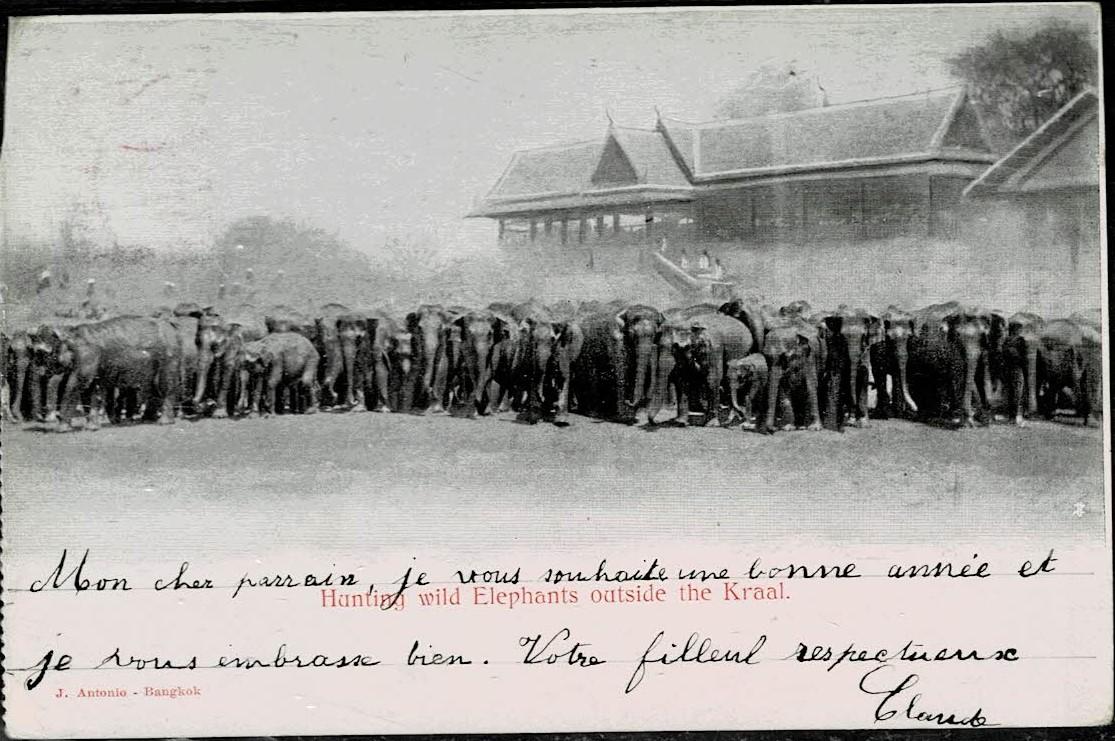 Mon cher parrain, je vous souhaite une bonne année et
Hunting wild Elephants outside the Kraal.
je vous embrasse bien. Votre filleul respectueux
J. Antonio - Bangkok
Claude